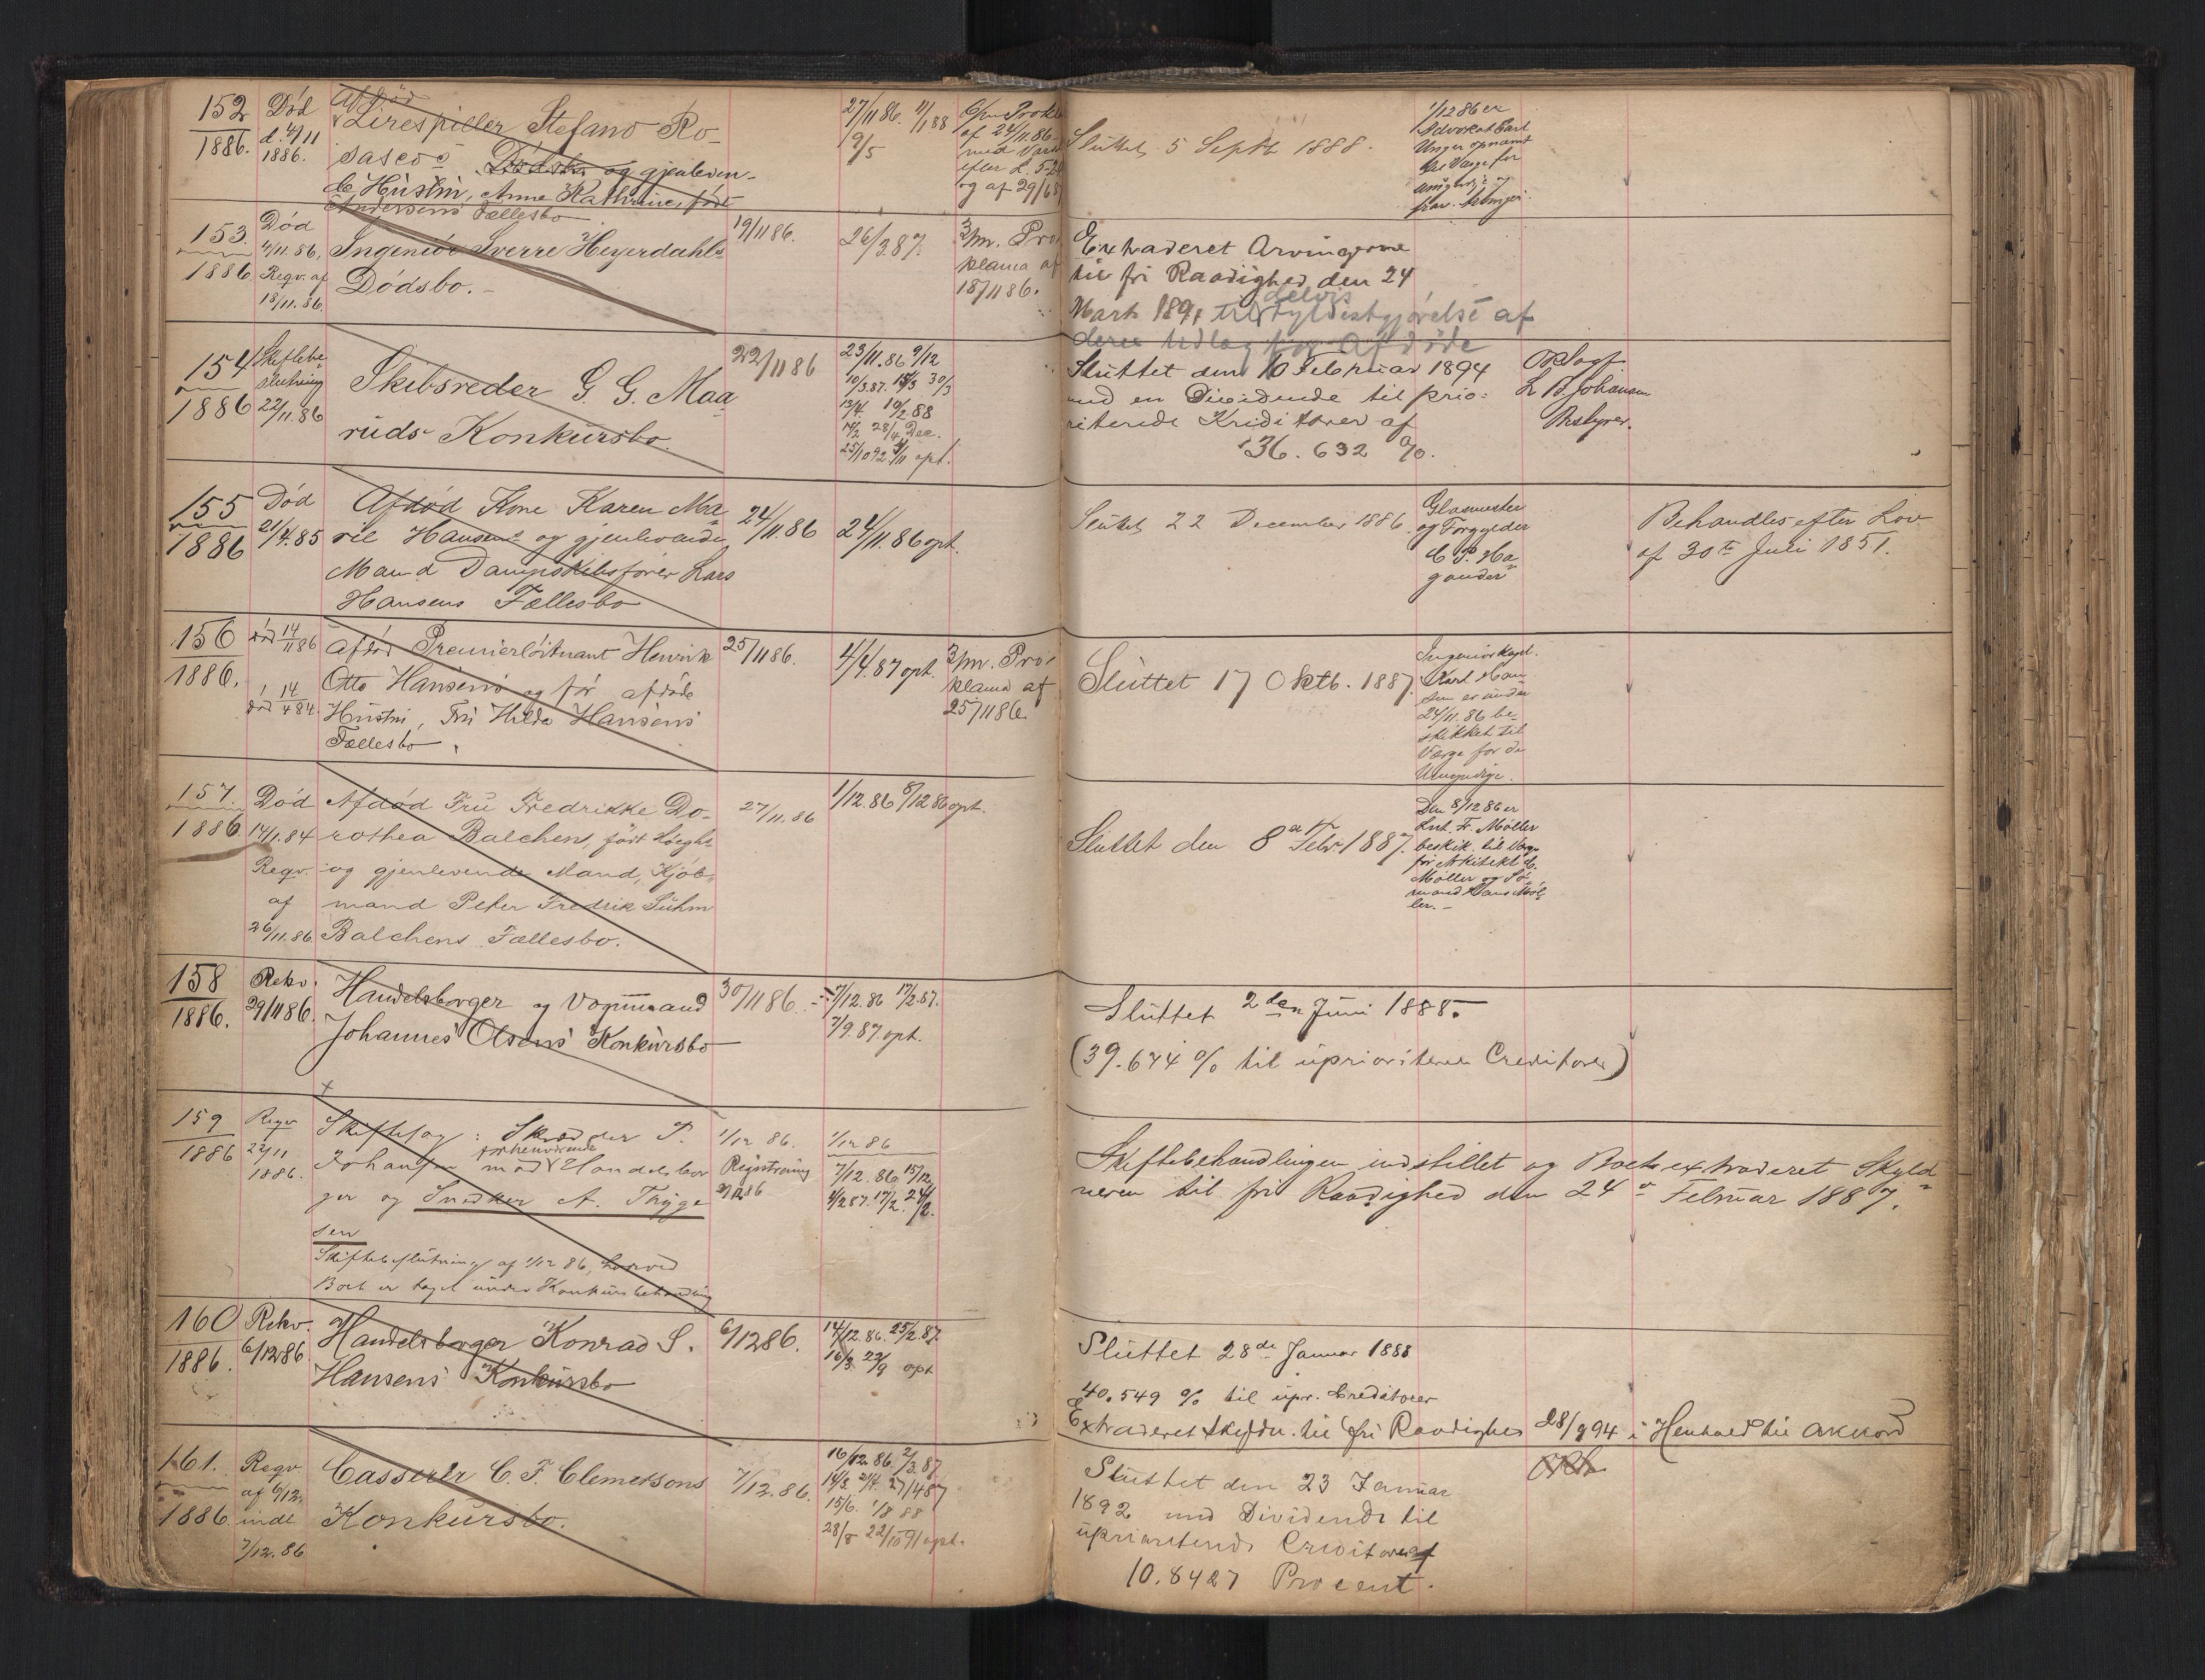 152
1886.
Død
d. 4/11
1886.
Afdød
Lirespiller Stefano Ro-
sascos Dødsbo og gjenleven-
de Hustru, Anne Kathrine, født
Andersens Fællesbo
27/11 86. 11/1 88
9/5
6/m Prokla
af 24/11.86
med Varsel
efter L.
og af 29/
Sluttet 5 Septb 1888.
1/12 86 er
Advokat Carl
Unger opnævnt
til Værge for
153.
1886
Død
4/11.86,
Reqv. af
18/11.86.
Ingeniør Sverre Heyerdahls
Dødsbo.
19/11 86.
26/3 87.
3/m. Pro
klama af
18/11 86.
Extraderet Arvingerne
til fri Raadighed den 24
Marts 1891 til delvis Fyldestgjørelse af
deres Udlæg for Afdøde
154
1886
Skiftebe-
slutning
22/11.86
Skibsreder G. G. Maa
ruds Konkursbo.
22/11 86
23/11.86 9/12
10/3.87. 15/3 30/3
13/4. 10/2 88
14/2 28/4 Dec.
25/10 92 4/11 opt.
Sluttet den 10 Februar 1894
med en Dividende til prio-
riterede Kreditorer af
36.632 %.
Opsagt
L B. Johansen
Bestyrer.
155
1886
Død
21/4.85
Afdød Kone Karen Ma-
rie Hansens og gjenlevende
Mand Dampskibsfører Lars
Hansens Fællesbo
24/11.86
24/11.86 opt.
Sluttet 22 December 1886.
Glasmester
og Forgylder
C. P. Ha-
gander
Behandles efter Lov
af 30te Juli 1851.
156
1886.
død 14/11 86
død 14/4 84.
Afdød Premierløitnant Henrik
Otto Hansens og før afdøde
Hustru, Fru Hilda Hansens
Fællesbo.
25/11 86.
4/4.87 opt.
3/m. Pro-
klama af
25/11 86.
Sluttet 17 Oktb. 1887.
Ingeniørkapt.
Karl Han-
sen er under
24/11.86 be-
skikket til
Værge for de
Umyndige.
157.
1886
Død
14/1.84
Reqv.
af
26/11.86
Afdød Fru Fredrikke Do-
rothea Balchens, født
og gjenlevende Mand, Kjøb-
mand Peter Fredrik Suhm
Balchens Fællesbo.
27/11.86
1/12.86 8/12 86 opt.
Sluttet den 8de Febr. 1887.
Den 8/12 86 er
Lnt. Fr. Møller
beskik. til Værge
for Arkitekt
Møller og Sø-
mand Hans Møl-
ler.-
158
1886.
Rekv.
29/11 86.
Handelsborger og Vognmand
Johannes Olsens Konkursbo
30/11 86.
7/12.86 17/2.87.
7/9.87. opt.
Sluttet 2den Juni 1888.
(39.644 % til uprioriterede Creditorer)
159
1886
Reqv
22/11
1886.
Skiftesag: Skrædder P.
Johansen mod forhenværende Handelsbor
ger og Snedker A. Thyge
sen
Skiftebeslutning af 1/12 86, hvorved
Boet er taget under Konkursbehandling
1/12 86.
Registrering
2/12 86
1/12 86
7/12. 86 15/12
4/2 87. 17/2. 24/2.
Skiftebehandlingen indstillet og Boet extraderet Skyld-
neren til fri Raadighed den 24de Februar 1887.
160
1886.
Rekv.
6/12 86
Handelsborger Konrad S.
Hansens Konkursbo
6/12 86.
14/12.86. 25/2.87.
16/3 22/9 opt
Sluttet 28de Januar 1888
40.549 % til upr. Creditorer
Extraderet Skyldn. til fri Raadighed 28/9 94 i Henhold til Akkord
161.
1886
Reqv
af 6/12.
indl
7/12.86
Casserer C. F. Clemetsons
Konkursbo.
7/12.86.
16/12.86. 2/3.87
14/3. 21/4. 27/4 87
15/6. 1/8 88
28/8 22/10 91 opt.
Sluttet den 23 Januar
1892 med Dividende til
uprioriterede Creditorer af
10.8427 Procent.